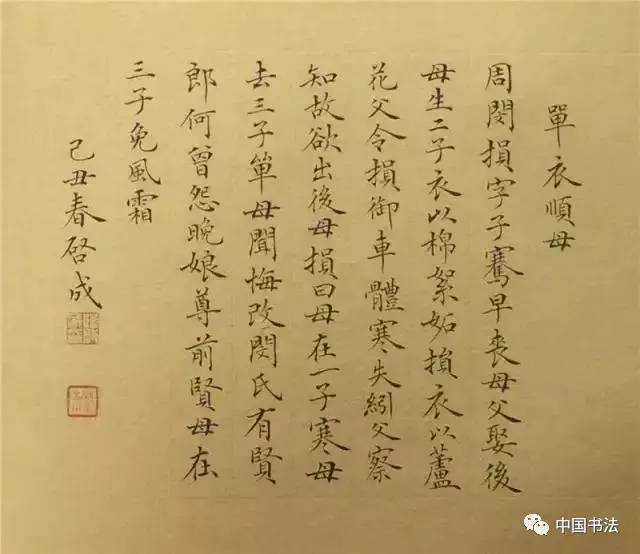 單衣順母
周閔損字子騫早喪母父娶後
母生二子衣以棉絮妬損衣以蘆
花父令損御車體寒失紖父察
知故欲出後母損曰母在一子寒母
去三子單母聞悔改閔氏有賢
郎何曾怨晚娘尊前賢母在
三子免風霜
己丑春啓成
中国书法